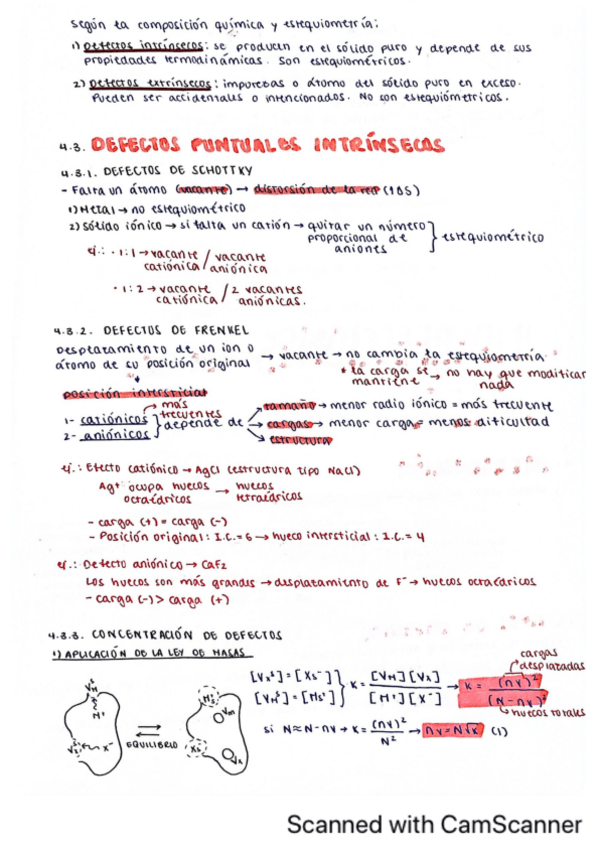 según la composición química y estequiometría:
1) Defectos intrínsecos: se producen en el sólido puro y depende de sus
propiedades termodinámicas. Son estequiométricos.
2) Defectos extrínsecos: impurezas o átomo del sólido puro en exceso.
Pueden ser accidentales o intencionados. No son estequiómetricos.
4.3. DEFECTOS PUNTUALES INTRÍNSECOS
4.3.1. DEFECTOS DE SCHOTTKY
- Falta un átomo (vacante) → distorsión de la red (1 DS)
1) Metal → no estequiométrico
2) Sólido iónico → si falta un catión → quitar un número
proporcional de
aniones
} estequiométrico
ej.: · 1:1 → vacante / vacante
catiónica / aniónica
· 1:2 → vacante / 2 vacantes
catiónica / aniónicas.
4.3.2. DEFECTOS DE FRENKEL
Desplazamiento de un ion o
átomo de su posición original
→ vacante → no cambia la estequiometría
* la carga se → no hay que modificar
mantiene nada
posición intersticial
más
frecuentes
1- catiónicos
2- aniónicos
} depende de
tamaño → menor radio iónico = más frecuente
cargas → menor carga = menos dificultad
estructura
ej.: Efecto catiónico → AgCl (estructura tipo NaCl)
Ag⁺ ocupa huecos → huecos
octaédricos tetraédricos
- carga (+) = carga (-)
- Posición original: I.C.=6 → hueco intersticial: I.C.=4
ej.: Defecto aniónico → CaF₂
Los huecos son más grandes → desplazamiento de F⁻ → huecos octaédricos
- carga (-) > carga (+)
4.3.3. CONCENTRACIÓN DE DEFECTOS
1) APLICACIÓN DE LA LEY DE MASAS
cargas
desplazadas
K = [V_M][V_X] / [M⁺][X⁻] → K = (nv)² / (N-nv)²
huecos totales
EQUILIBRIO
si N≈N-nv → K = (nv)² / N² → nv = N√K (1)
Scanned with CamScanner